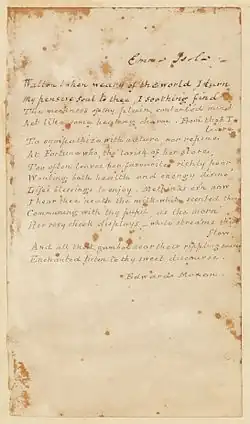 Emma Isola
Walton! when weary of the world I turn
My pensive soul to thee, I soothing find
The meekness of thy plain, contented mind
Act like some healing charm. From thee I
learn
To sympathise with nature, nor repine
At Fortune who, tho' lavish of her store
Too often leaves her favorites richly poor
Wanting both health and energy divine
Life's blessings to enjoy. Methinks e'en now
I hear thee 'neath the milk white scented thorn
Communing with thy pupil, as the morn
Her rosy cheek displays, while streams that
flow
And all that gambol near their rippling source
Enchanted listen to thy sweet discourse.
Edward Moxon.